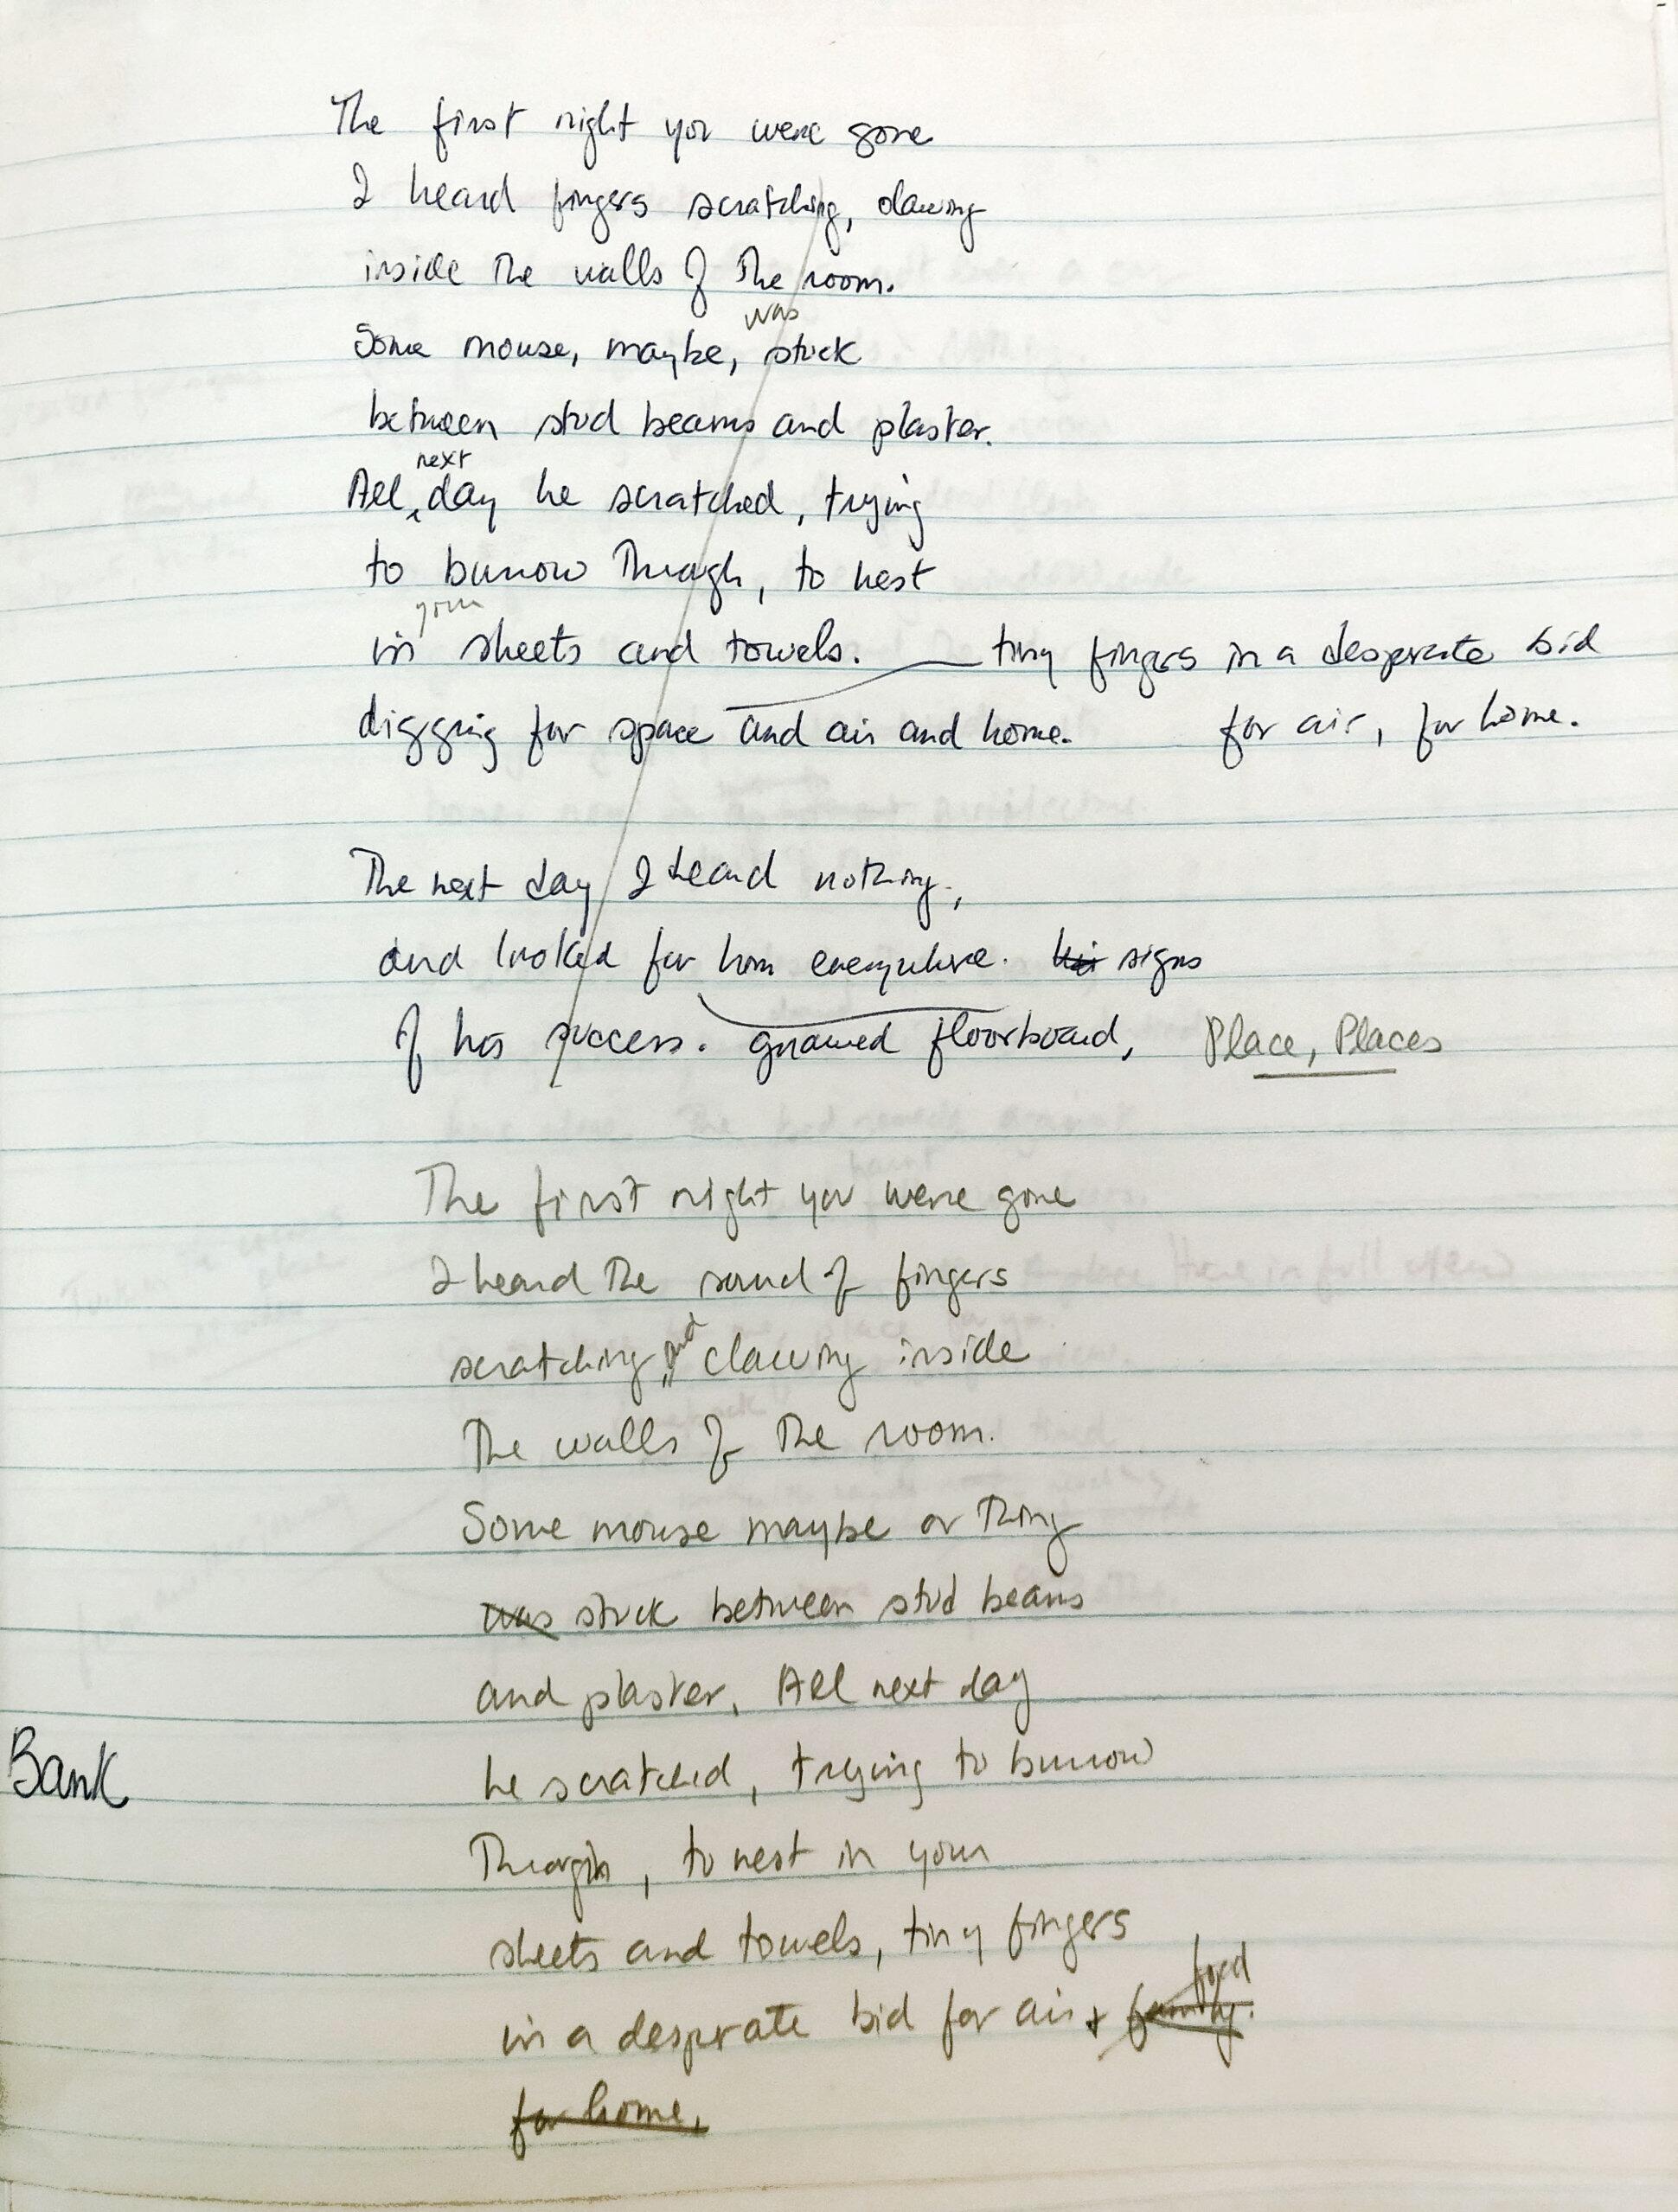 The first night you were gone
I heard fingers scratching, clawing
inside the walls of the room.
was
Some mouse, maybe, stuck
between stud beams and plaster.
next
All day he scratched, trying
to burrow through, to nest
your
in sheets and towels. tiny fingers in a desperate bid
digging for space and air and home. for air, for home.
The next day I heard nothing,
and looked for him everywhere. his signs
of his success. gnawed floorboard, Place, Places
The first night you were gone
I heard the sound of fingers
and
scratching, clawing inside
the walls of the room.
Some mouse maybe or thing
was stuck between stud beams
and plaster. All next day
Bank
he scratched, trying to burrow
through, to nest in your
sheets and towels, tiny fingers
food
in a desperate bid for air + family.
for home.